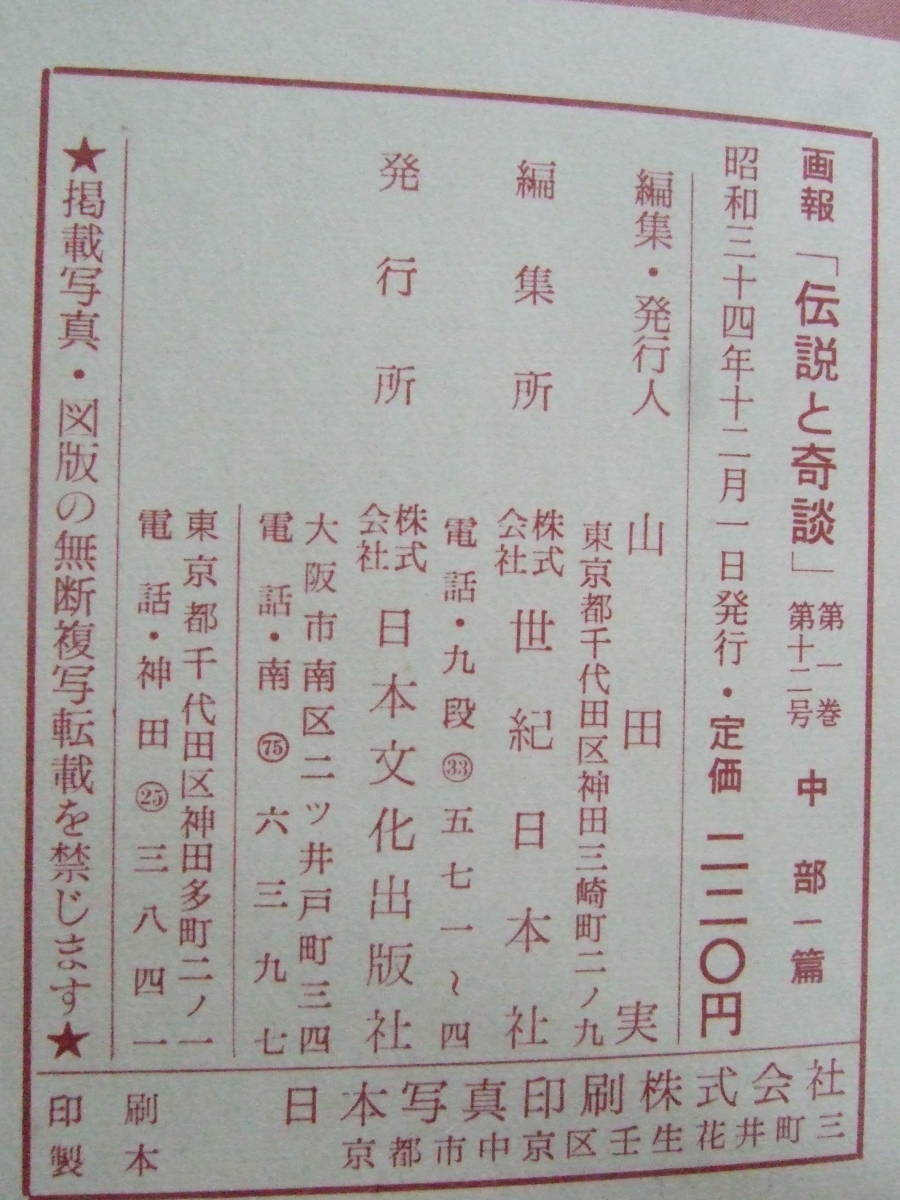 画報「伝説と奇談」第一巻第十二号 中部一篇
昭和三十四年十二月一日発行・定価 二二〇円
編集・発行人 山田実
東京都千代田区神田三崎町二ノ九
編集所 株式会社世紀日本社
電話・九段㉝五七一〜四
発行所 株式会社日本文化出版社
大阪市南区二ツ井戸町三四
電話・南(75)六三九七
東京都千代田区神田多町二ノ一
電話・神田㉕三八四一
★掲載写真・図版の無断複写転載を禁じます★
印刷 日本写真印刷株式会社
製本 京都市中京区壬生花井町三